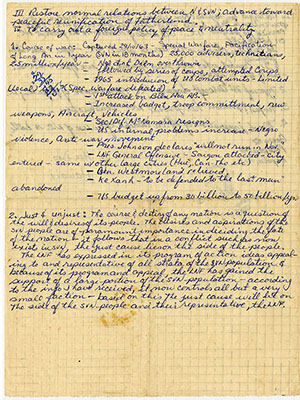 III Restore normal relations between N & SVN, advance toward
peaceful reunification of Fatherland.
IV To carry out a foreign policy of peace & neutrality.
1. Course of war: Captured Special Warfare, Pacification
of Long An in 1 year (SVN in 18 months) advisers, technicians
million/year - Ngo dinh Diem overthrown
followed by series of coups, attempted coups
- 1965 introduction of US combat units - Limited
(Local Spec warfare defeated)
- Westland
- Increased budget, troop committment, new
weapons, Aircraft, Vehicles
- Sec/Def McNamara resigns
- US internal problems increase - Negro
violence, Anti-war movement
- Pres Johnson declares will not run in Nov.
- LAF General Offensive - Saigon attacked - City
entered - same w/other large cities (Hue, Can Tho etc)
- Gen. Westmoreland relieved
- Ke Sanh - to be defended to the last man;
abandoned
- US budget up from 30 billion to 50 billion/yr.
2. Just & Unjust: The course & destiny of any nation is a question of
the will & desires of its people. The desires and aspirations of the
SVN people are of paramount importance in deciding the fate
of the nation - it follows that in a conflict such as now
exist in SVN, the just cause lies on the side of the people.
The NLF has expressed in its program of action ideas appeal-
ing to and representative of all strata of the SVN population &
because of its program and appeal, the NLF has gained the
support of a large portion of the SVN population - according
to the info I have received, it now controls all but a very
small faction - based on this the just cause will lie on
the side of the SVN people and their representative, the NLF.